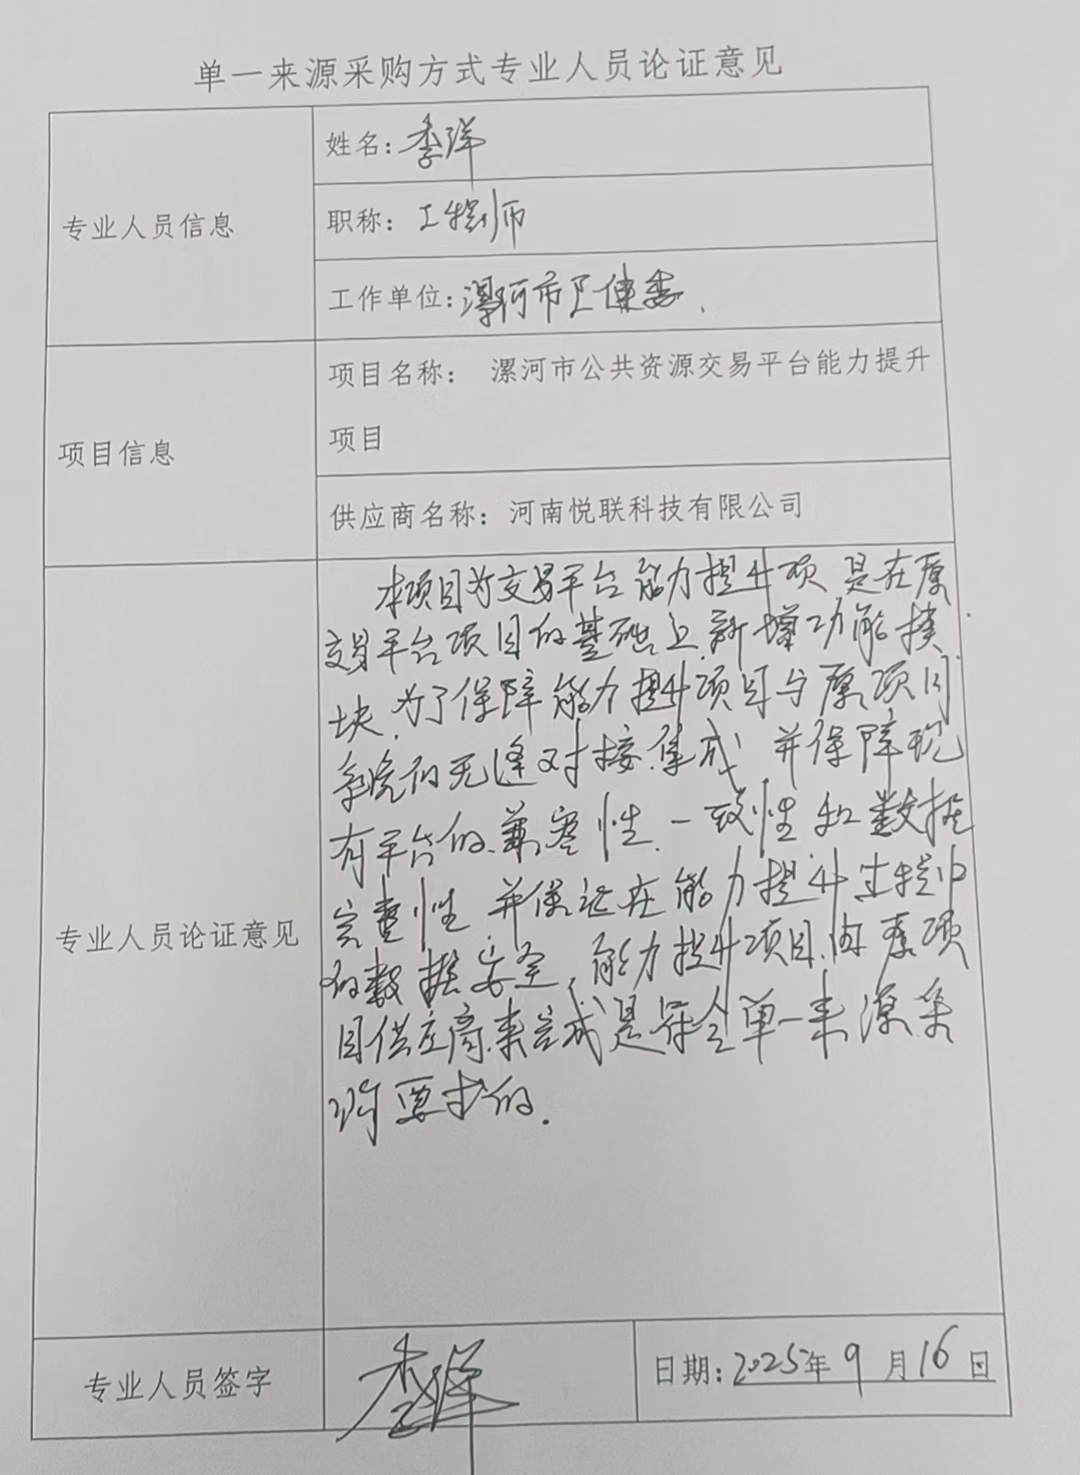 单一来源采购方式专业人员论证意见
专业人员信息
姓名：李洋
职称：工程师
工作单位：漯河市卫健委.
项目信息
项目名称： 漯河市公共资源交易平台能力提升
项目
供应商名称：河南悦联科技有限公司
专业人员论证意见
本项目为交易平台能力提升项,是在原
交易平台项目的基础上,新增功能模
块,为了保障能力提升项目与原项目
系统的无缝对接.集成 并保障现
有平台的兼容性.一致性和数据
完整性 并保证在能力提升过程中
的数据安全,能力提升项目由原项
目供应商来完成是符合单一来源采
购要求的.
专业人员签字
李洋
日期：2025年9月16日